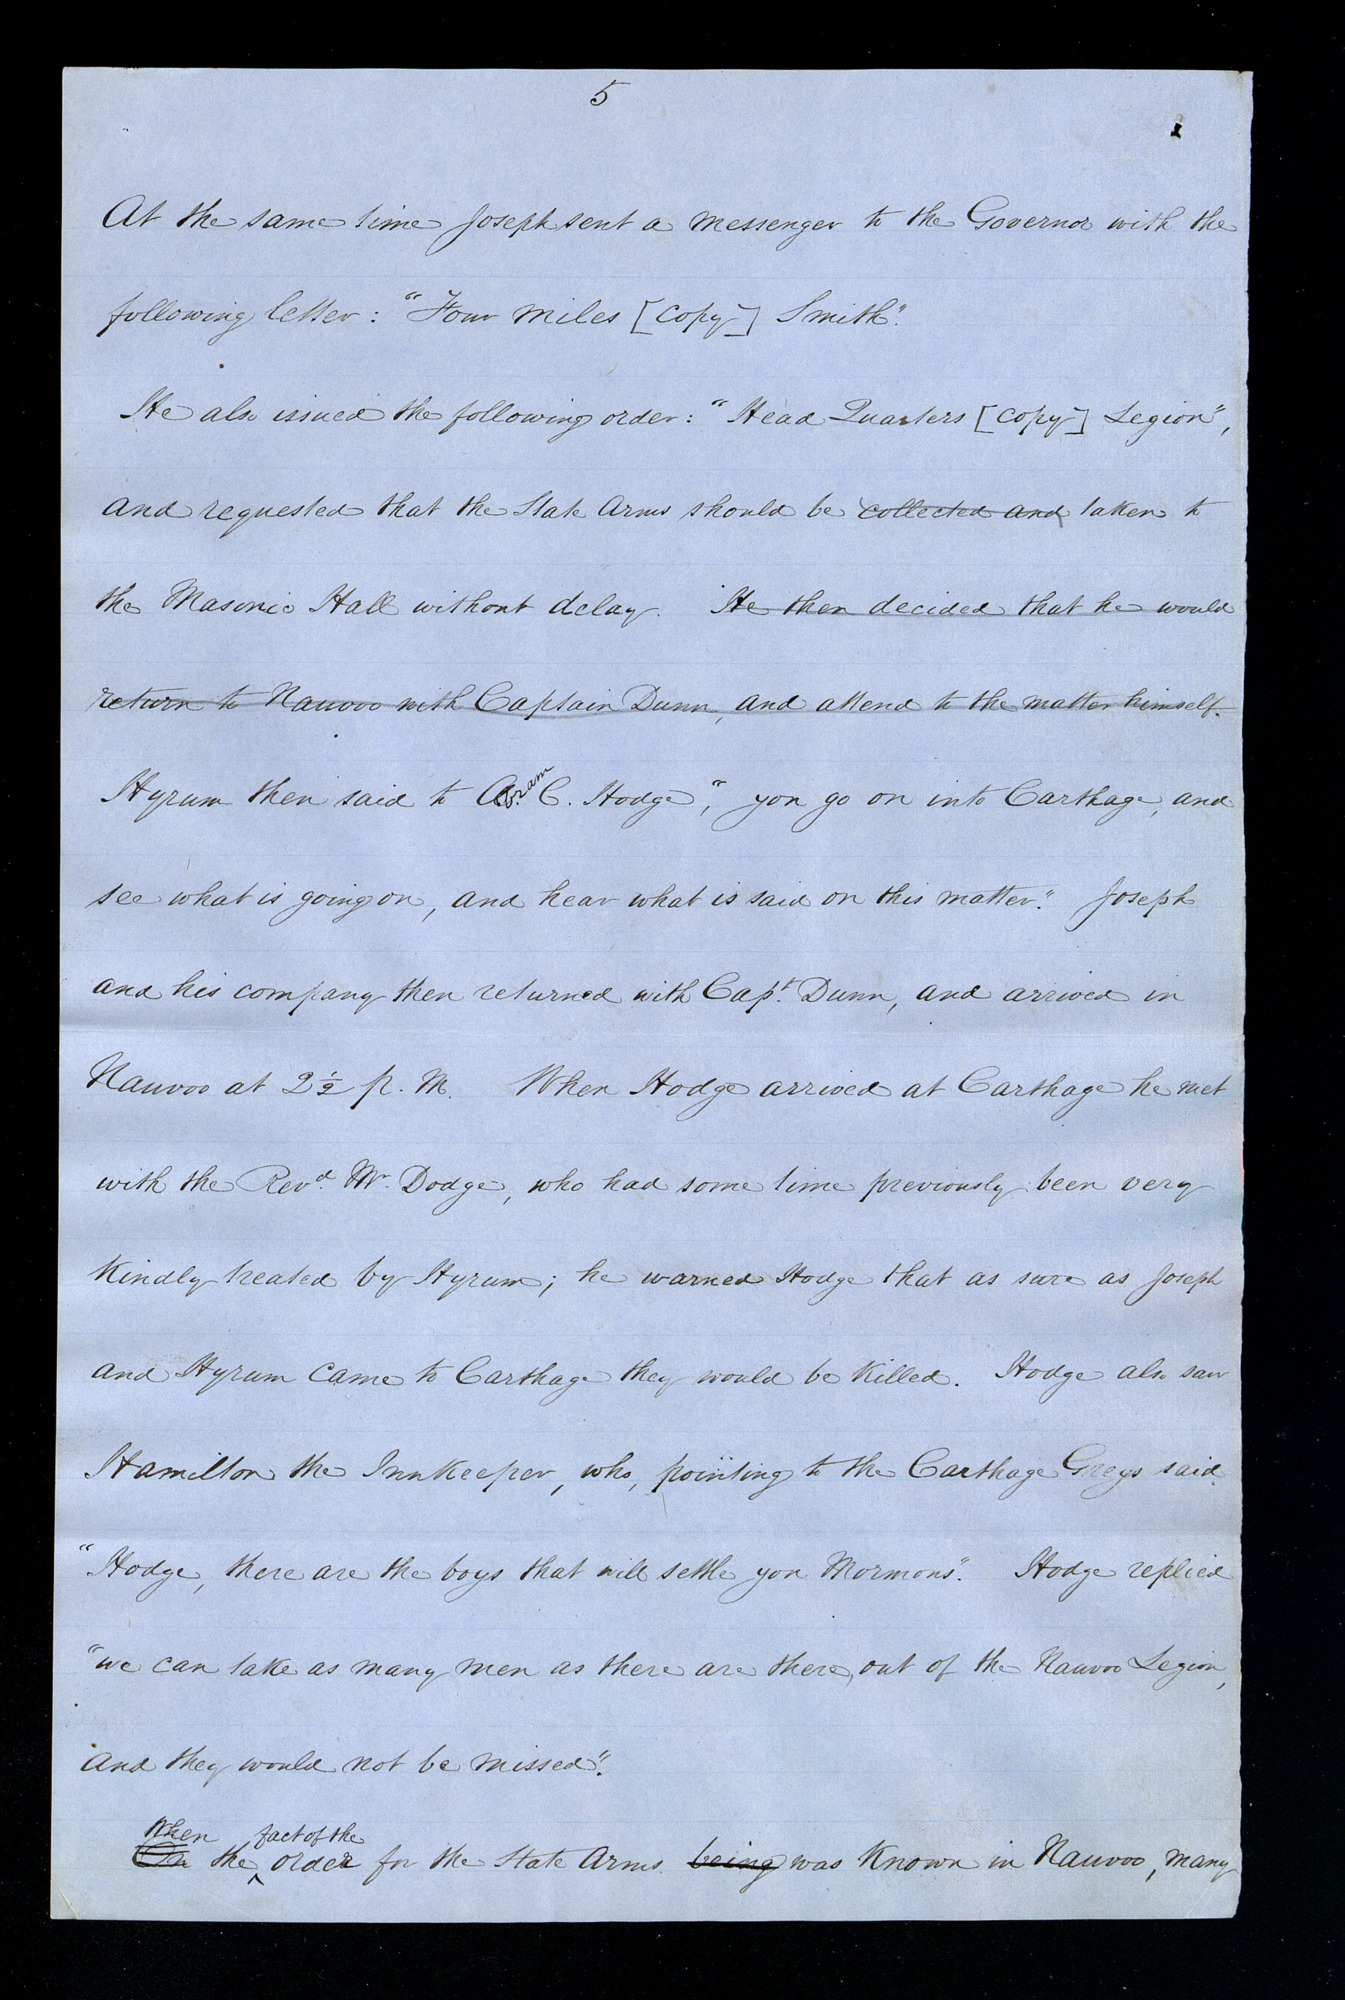 5
At the same time Joseph sent a messenger to the Governor with the
following letter: "Four miles [copy] Smith".
He also issued the following order: "Head Quarters [copy] Legion",
and requested that the State Arms should be collected and taken to
the Masonic Hall without delay. He then decided that he would
return to Nauvoo with Captain Dunn, and attend to the matter himself.
Hyrum then said to Abram C. Hodge, "you go on into Carthage, and
see what is going on, and hear what is said on this matter." Joseph
and his company then returned with Capt. Dunn, and arrived in
Nauvoo at 2½ p. M. When Hodge arrived at Carthage he met
with the Revd. Mr. Dodge, who had some time previously been very
kindly treated by Hyrum; he warned Hodge that as sure as Joseph
and Hyrum came to Carthage they would be killed. Hodge also saw
Hamilton the Innkeeper, who, pointing to the Carthage Greys said
"Hodge, there are the boys that will settle you Mormons". Hodge replied
"we can take as many men as there are there, out of the Nauvoo Legion,
and they would not be missed".
When fact of the
On the order for the State Arms being was known in Nauvoo, many